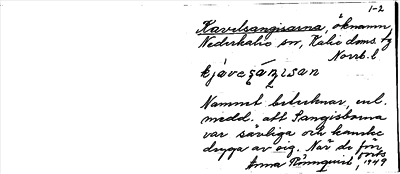 1-2
Kavelsangisarna, öknamn,
Nederkalix sn, Kalix doms. tg
Norrb. l.
kjávesáŋisan
Namnet betecknar, enl.
medd. att Sangisborna
var sävliga och kanske
dryga av sig. När de för
Anna Rönnquist, 1949